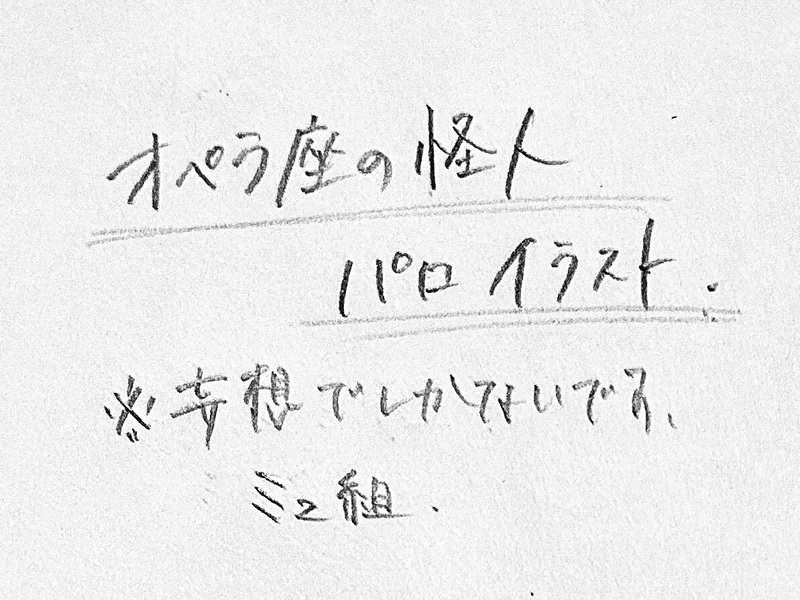 オペラ座の怪人
パロイラスト.
※妄想でしかないです、
ミュ組.